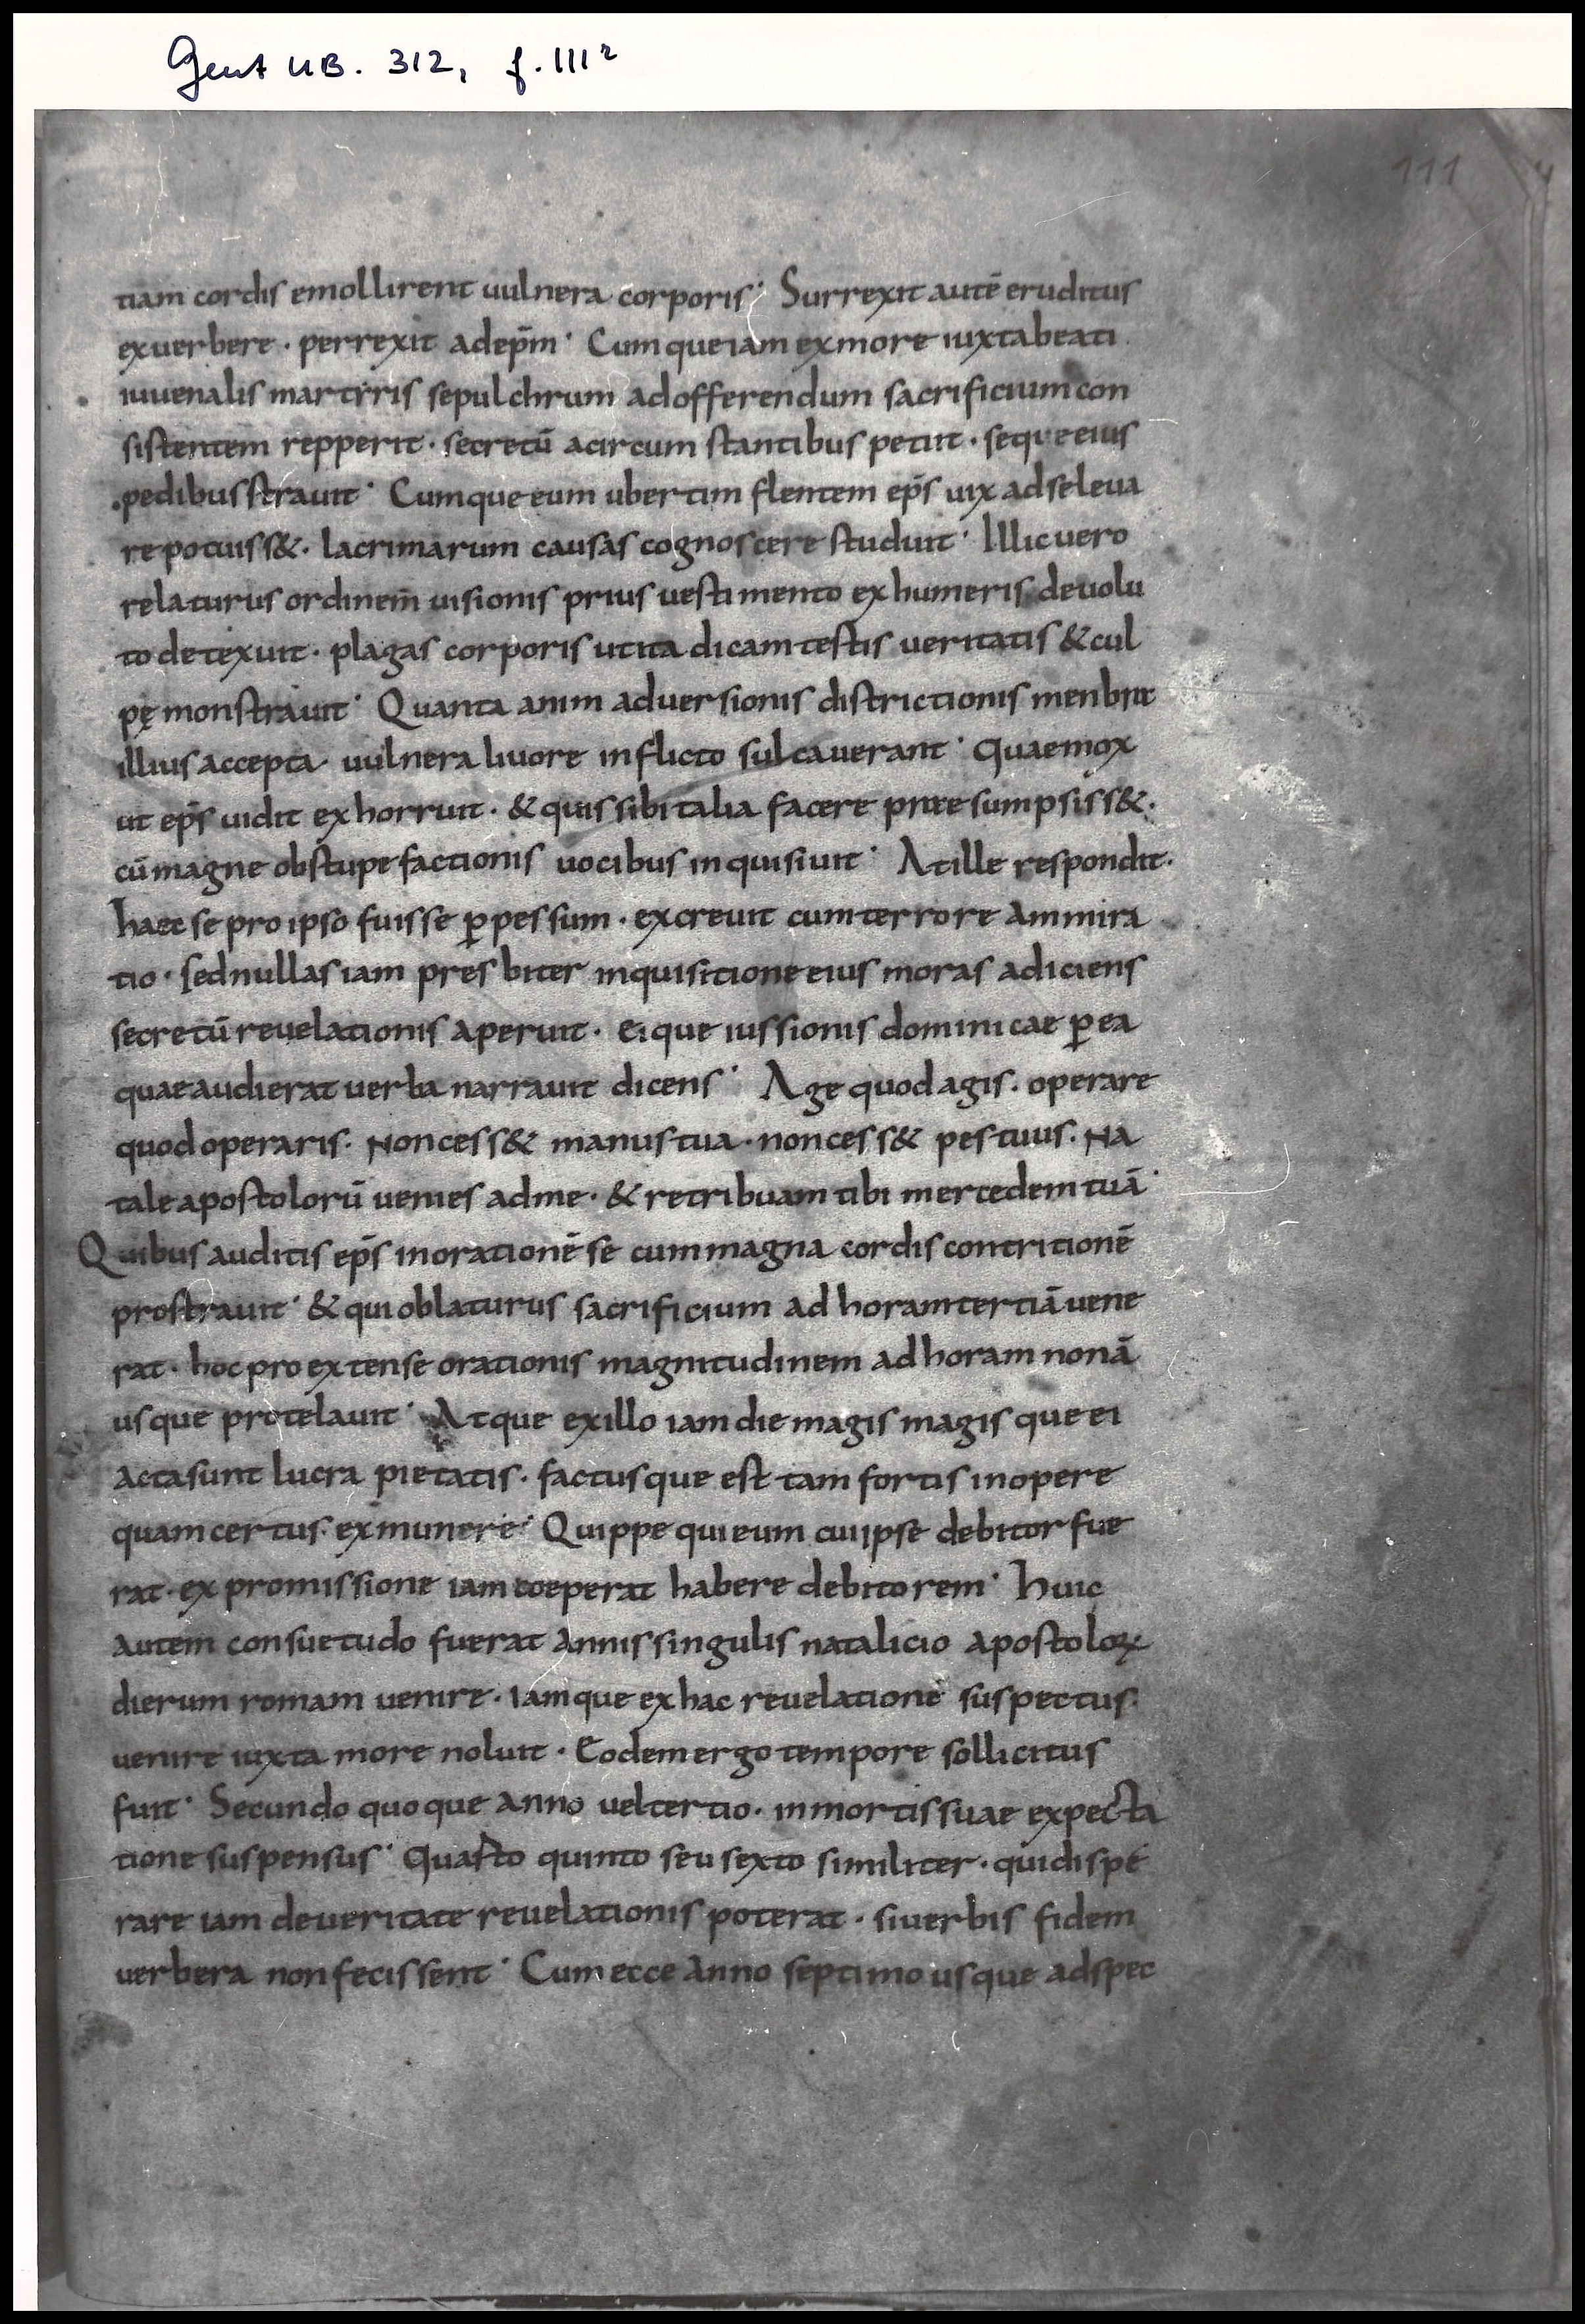 Gent UB. 312, f. 111r
111
tiam cordis emollirent uulnera corporis· Surrexit autē eruditus
exuerbere· perrexit adep̄m· Cumqueiam exmore iuxtabeati
iuuenalis martyris sepulchrum adofferendum sacrificium con
sistentem repperit· secretū acircum stantibus petiit· sequeeius
pedibus strauit· Cumque eum ubertim flentem ep̄s uix adseleua
re potuiss&· lacrimarum causas cognoscere studuit· Illic uero
relaturus ordinem̄ uisionis prius uestimento exhumeris deuolu
to detexuit· plagas corporis utita dicam testis ueritatis & cul
pę monstrauit· Quanta anim aduersionis districtionis menbra
illius accepta uulnera liuore inflicto sulcauerant· Quaemox
ut ep̄s uidit exhorruit· & quis sibi talia facere praesumpsiss&·
cū magne obstupefactionis uocibus inquisiuit· At ille respondit·
haec se pro ipso fuisse p̱pessum· excreuit cum terrore ammira
tio· sed nullas iam presbiter inquisitione eius moras adiciens
secretū reuelationis aperuit· eique iussionis dominicae p̱ ea
quae audierat uerba narrauit dicens· Age quod agis· operare
quod operaris· Non cess& manus tua· non cess& pes tuus· Na
tale apostolorū uenies adme· & retribuam tibi mercedem tuā·
Quibus auditis ep̄s inorationē se cum magna cordis contritionē
prostrauit· & qui oblaturus sacrificium ad horam tertiā uene
rat· hoc pro extense orationis magnitudinem ad horam nonā
usque protelauit· Atque exillo iam die magis magisque ei
acta sunt lucra pietatis· factusque est tam fortis inopere
quam certus exmunere· Quippe qui eum cui ipse debitor fue
rat· ex promissione iam coeperat habere debitorem· huic
autem consuetudo fuerat annis singulis natalicio apostoloꝝ
dierum romam uenire· Iamque ex hac reuelatione suspectus·
uenire iuxta more noluit· Eodem ergo tempore sollicitus
fuit· Secundo quoque anno uel tertio· inmortis suae expecta
tione suspensus· Quarto quinto seu sexto similiter· qui dispe
rare iam de ueritate reuelationis poterat· si uerbis fidem
uerbera non fecissent· Cum ecce anno septimo usque adspec